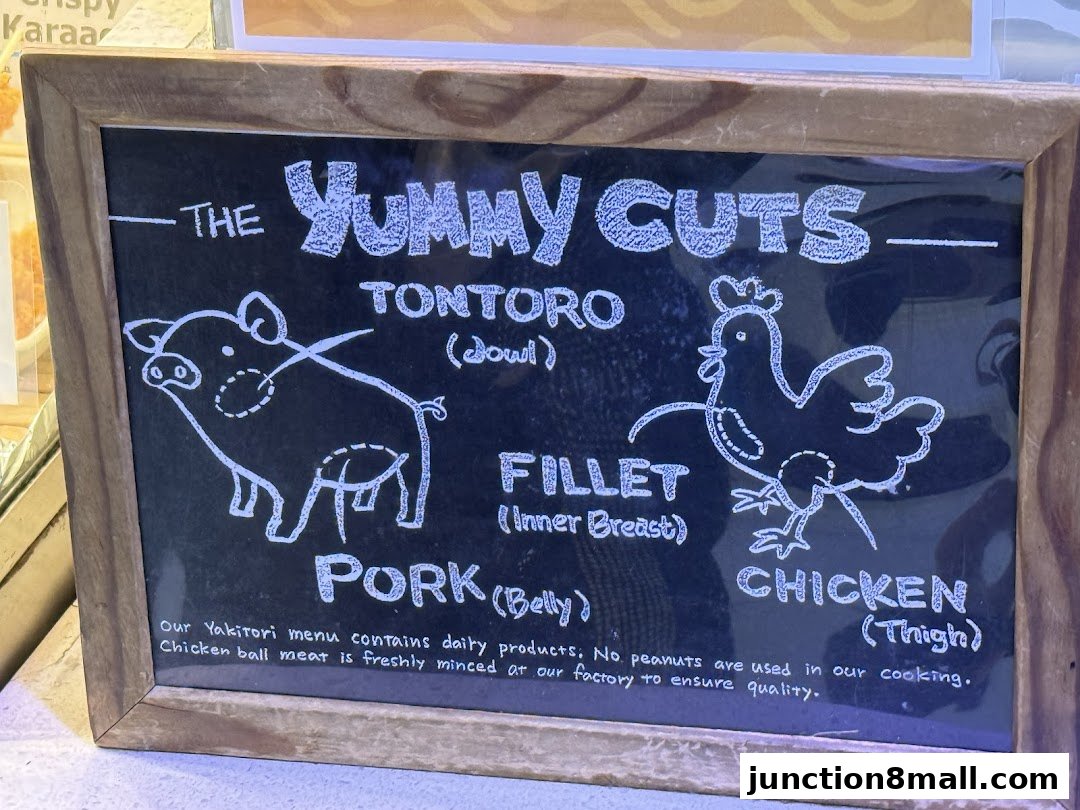 Crispy
THE YUMMY CUTS
TONTORO
(Jowl)
FILLET
(Inner Breast)
PORK (Belly)
CHICKEN
(Thigh)
Our Yakitori menu contains dairy products. No peanuts are used in our cooking.
Chicken ball meat is freshly minced at our factory to ensure quality.
junction8mall.com